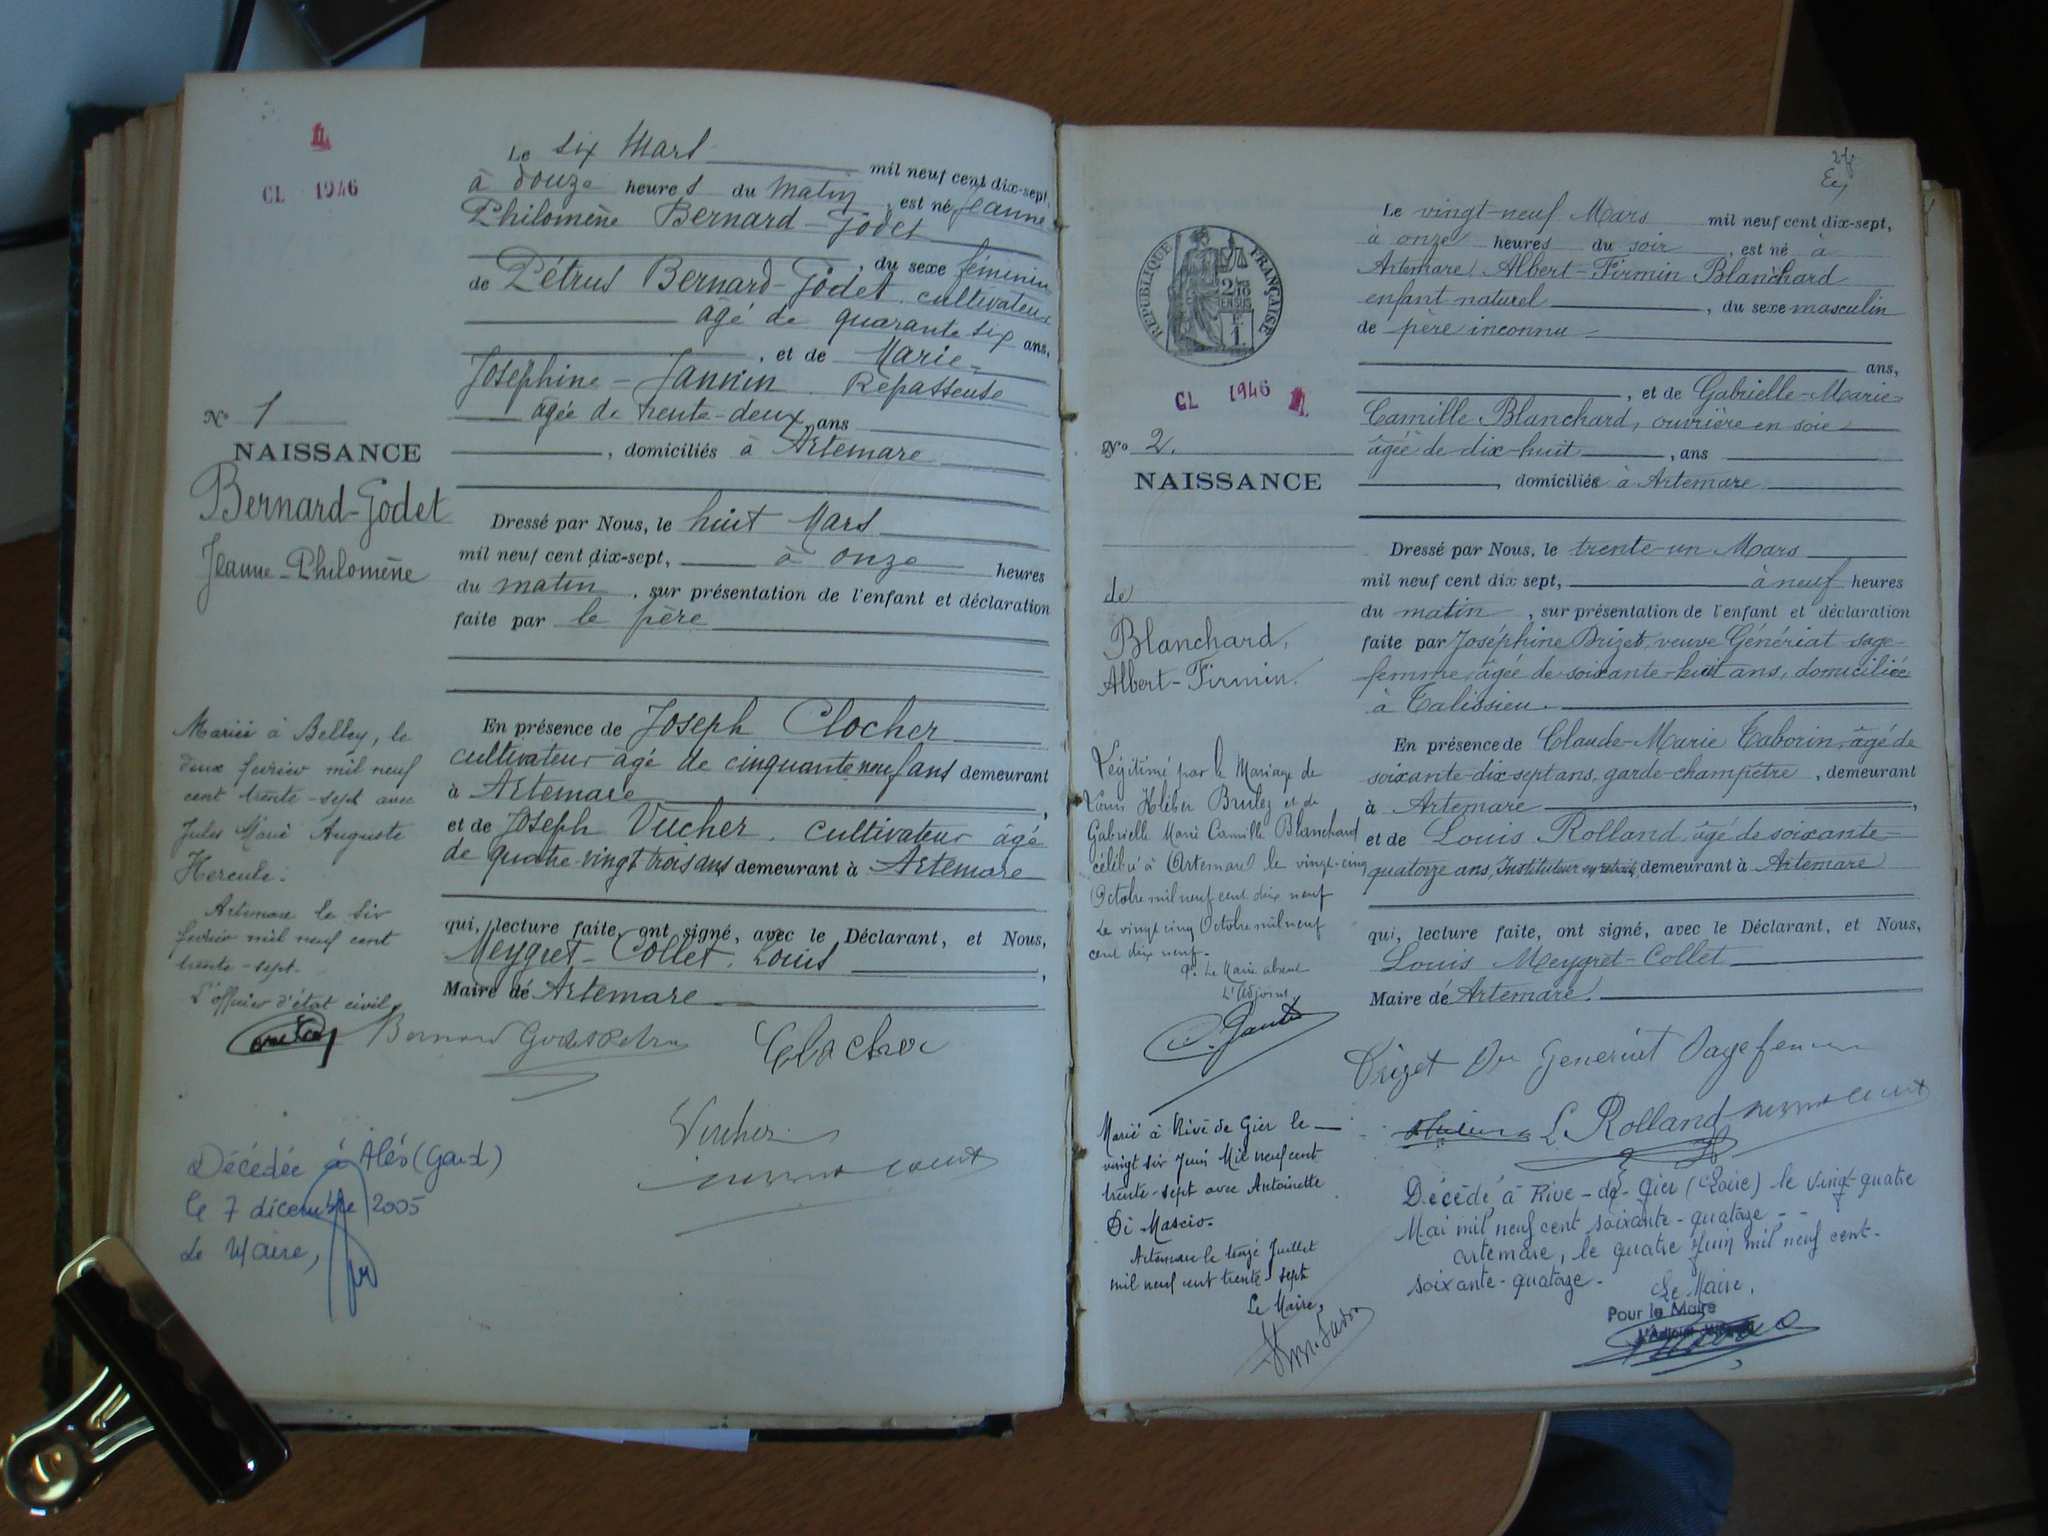 CL 1946
Le six Mars mil neuf cent dix-sept,
à douze heures du matin, est né Jeanne-
Philomène Bernard-Godet
, du sexe féminin
de Pétrus Bernard-Godet cultivateur
âgé de quarante six ans,
, et de Marie-
Joséphine-Jannin Repasseuse
âgée de trente-deux, ans
, domiciliés à Artemare
No 1
NAISSANCE
Bernard-Godet
Jeanne-Philomène
Dressé par Nous, le huit Mars
mil neuf cent dix-sept, à onze heures
du matin, sur présentation de l'enfant et déclaration
faite par le père
En présence de Joseph Clocher
cultivateur âgé de cinquante neuf ans demeurant
à Artemare,
et de Joseph Vucher cultivateur âgé
de quatre-vingt trois ans demeurant à Artemare
qui, lecture faite, ont signé, avec le Déclarant, et Nous,
Meygret-Collet Louis,
Maire de Artemare
Mariée à Belley, le
deux février mil neuf
cent trente-sept avec
Jules Marie Auguste
Hercule.
Artemare le six
février mil neuf cent
trente-sept.
L'officier d'état civil,
Bernard Godet Petrus
Clocher
Vucher
Décédée à Alès (Gard)
le 7 décembre 2005
Le Maire,
RÉPUBLIQUE FRANÇAISE
CL 1946
No 2.
NAISSANCE
de
Blanchard,
Albert-Firmin.
Le vingt-neuf Mars mil neuf cent dix-sept,
à onze heures du soir, est né à
Artemare Albert-Firmin Blanchard
enfant naturel, du sexe masculin
de père inconnu
ans,
, et de Gabrielle-Marie-
Camille Blanchard, ouvrière en soie
âgée de dix-huit, ans
, domiciliée à Artemare
Dressé par Nous, le trente-un Mars
mil neuf cent dix sept, à neuf heures
du matin, sur présentation de l'enfant et déclaration
faite par Joséphine Brizet, veuve Génériat sage-
femme, âgée de soixante-huit ans, domiciliée
à Talissieu.
En présence de Claude-Marie Taborin, âgé de
soixante-dix-sept ans, garde-champêtre, demeurant
à Artemare,
et de Louis Rolland, âgé de soixante-
quatorze ans, Instituteur en retraite, demeurant à Artemare
qui, lecture faite, ont signé, avec le Déclarant, et Nous,
Louis Meygret-Collet
Maire de Artemare.
Légitimé par le Mariage de
Louis Kléber Brulez et de
Gabrielle Marie Camille Blanchard
célébré à Artemare le vingt-cinq
Octobre mil neuf cent dix neuf
Le vingt cinq Octobre mil neuf
cent dix neuf.
P. Le Maire absent
L'Adjoint,
Brizet Vve Generiat Sage femme
L. Rolland
Marié à Rive de Gier le
vingt six Juin Mil neuf cent
trente-sept avec Antoinette
Di Mascio.
Artemare le treize Juillet
mil neuf cent trente-sept
Le Maire,
Décédé à Rive-de-Gier (Loire) le vingt-quatre
Mai mil neuf cent soixante-quatoze - -
Artemare, le quatre Juin mil neuf cent-
soixante-quatoze.
Le Maire,
Pour le Maire